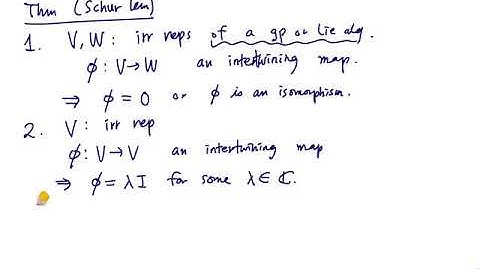 Thm (Schur lem)
1. V, W : irr reps of a gp or Lie alg.
ϕ : V → W an intertwining map.
⇒ ϕ = 0 or ϕ is an isomorphism.
2. V : irr rep
ϕ : V → V an intertwining map
⇒ ϕ = λI for some λ ∈ ℂ.